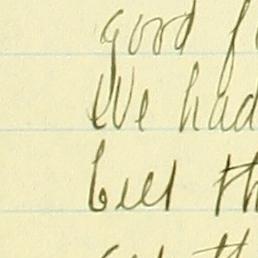 good f
We had
bell th